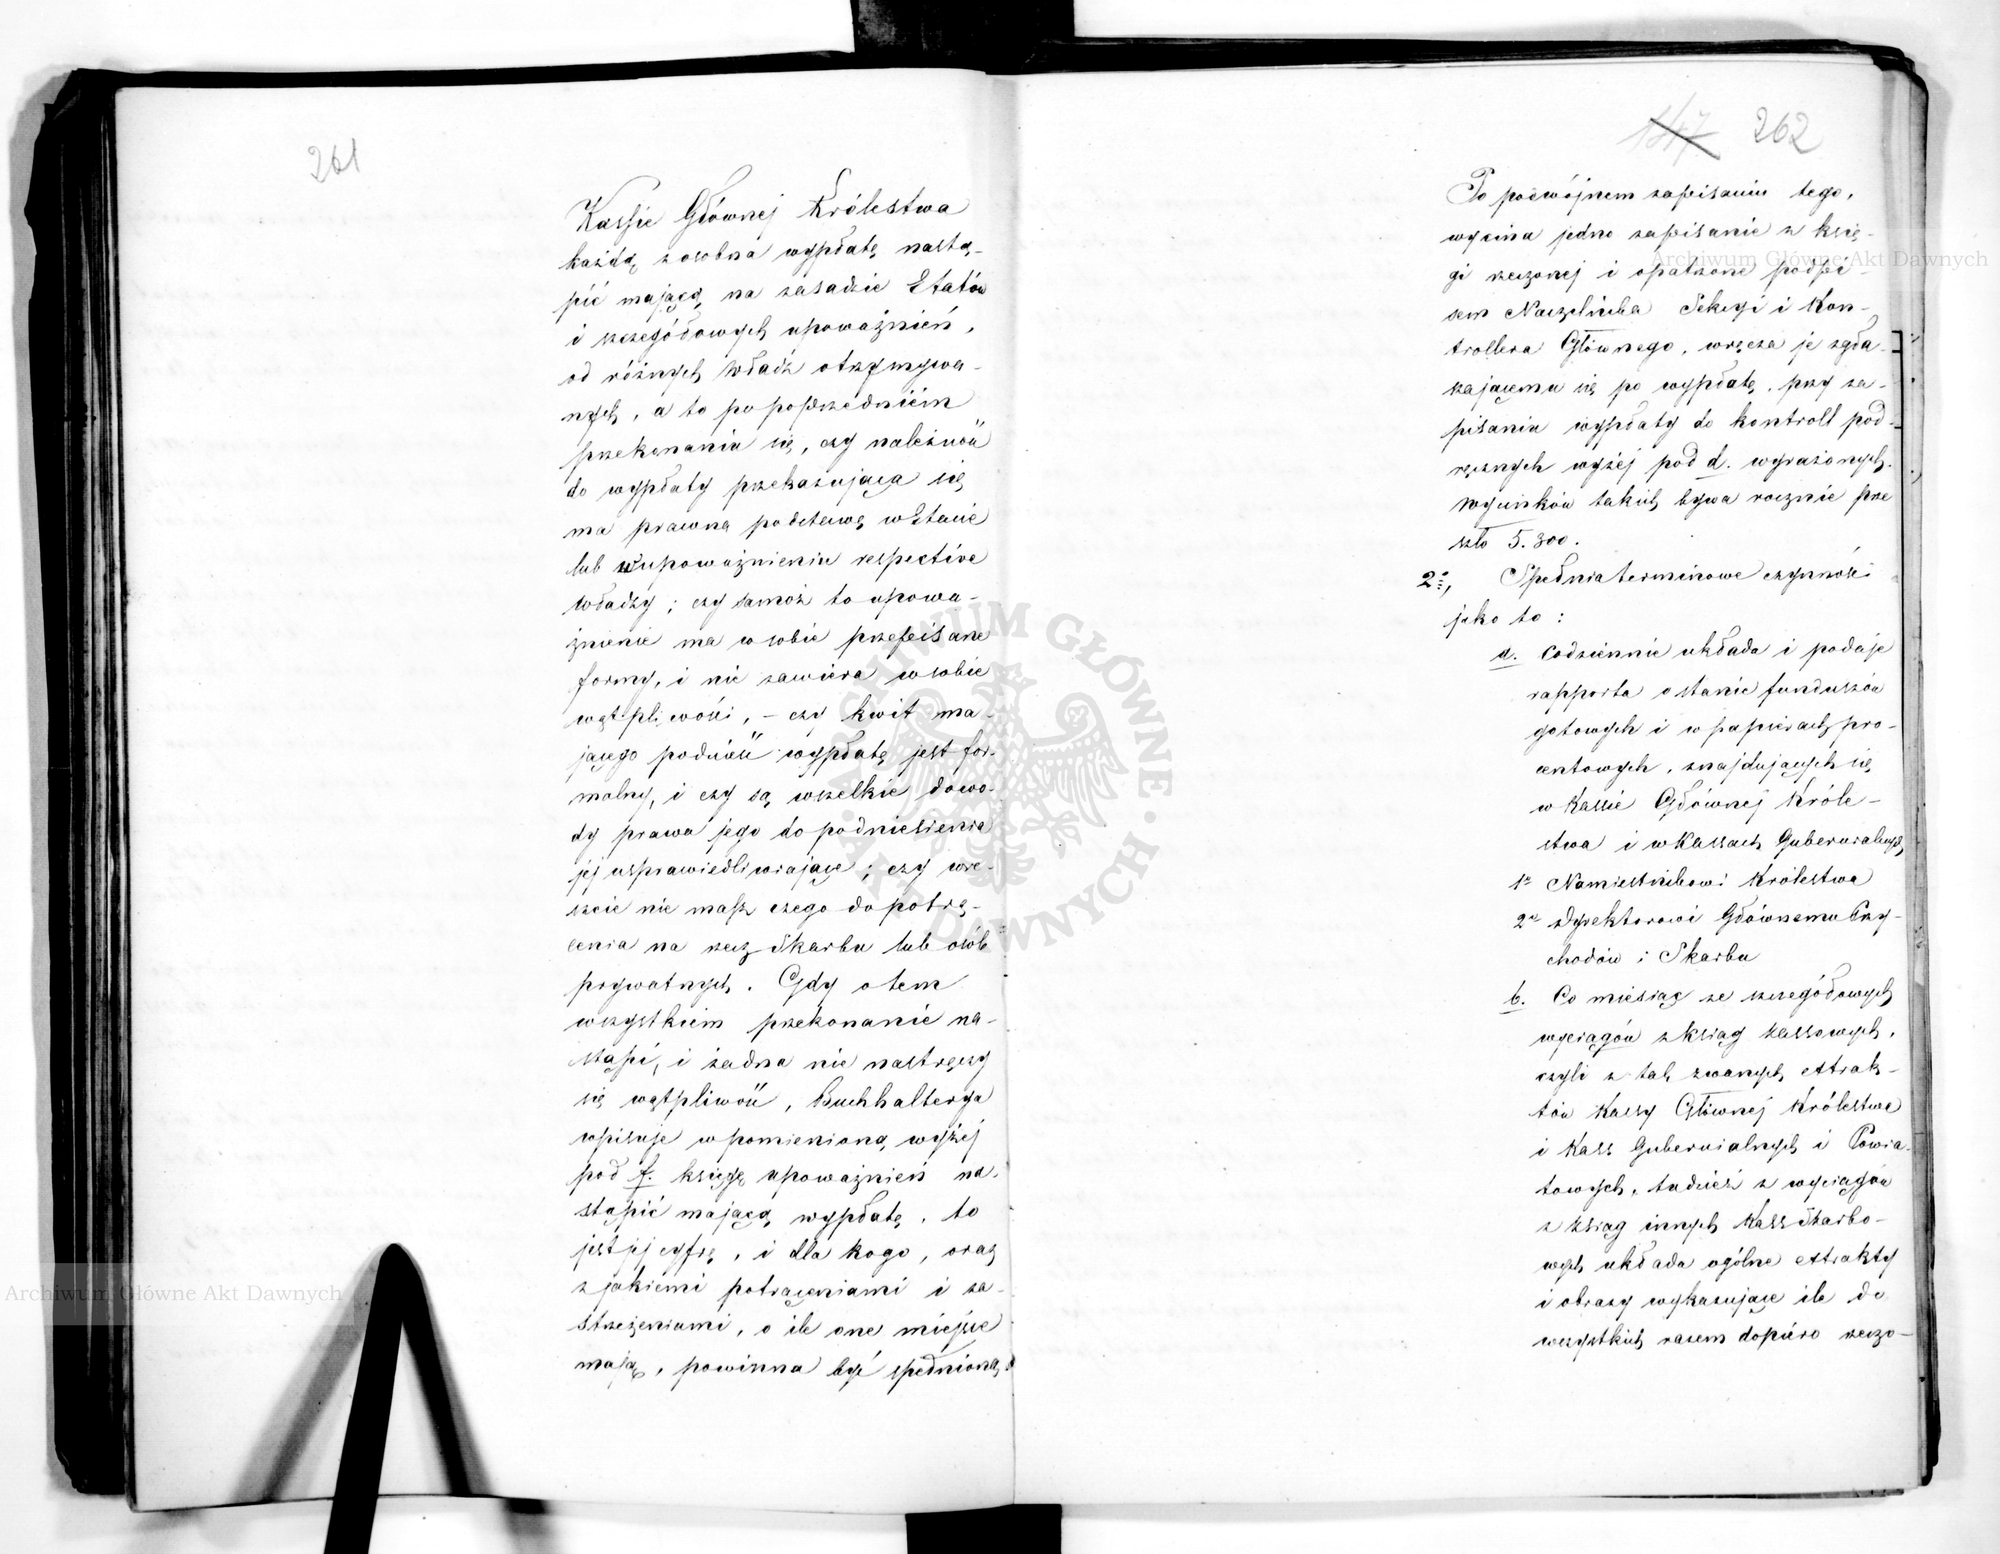 261
Kassie Głównej Królestwa
każdą z osobna wypłatę nastą-
pić mającą, na zasadzie Etatów
i szczegółowych upoważnień,
od różnych Władz otrzymywa-
nych, a to po poprzedniém
przekonaniu się, czy należność
do wypłaty przekazująca się
ma prawną podstawę w Etacie
lub w upoważnieniu respective
Władzy; czy samoż to upowa-
żnienie ma w sobie przepisane
formy, i nie zawiera w sobie
wątpliwości, – czy kwit ma-
jącego podnieść wypłatę jest for-
malny, i czy są wszelkie dowo-
dy prawa jego do podniesienia
jej usprawiedliwiające; czy wre-
szcie nie masz czego do potrą-
cenia na rzecz Skarbu lub osób
prywatnych. Gdy o tem
wszystkiém przekonanie na-
stąpi, i żadna nie nastręczy
się wątpliwość, Buchhalterya
wpisuje w pomienioną wyżej
pod f. księgę upoważnień na-
stąpić mającą wypłatę, to
jest jej cyfrę, i dla kogo, oraz
z jakiemi potrąceniami i za-
strzeżeniami, o ile one miejsce
mają, powinna być spełnioną.
147 262
Po podwójnem zapisaniu tego,
wycina jedno zapisanie z księ-
gi rzeczonej i opatrzone podpi-
sem Naczelnika Sekcyi i Kon-
trollera Głównego, wręcza je zgła-
szającemu się po wypłatę, przy za-
pisaniu wypłaty do kontroll pod-
ręcznych wyżej pod d. wyrażonych.
Wycinków takich bywa rocznie prze
szło 5.300.
2o, Spełnia terminowe czynności
jako to:
a. Codziennie układa i podaje
rapporta o stanie funduszów
gotowych i w papierach pro-
centowych, znajdujących się
w Kassie Głównej Króle-
stwa i w Kassach Gubernialnych
1o Namiestnikowi Królestwa
2o Dyrektorowi Głównemu Przy-
chodów i Skarbu
b. Co miesiąc ze szczegółowych
wyciągów z ksiąg kassowych,
czyli z tak zwanych extrak-
tów Kassy Głównej Królestwa
i Kass Gubernialnych i Powia-
towych, tudzież z wyciągów
z ksiąg innych Kass Skarbo-
wych układa ogólne extrakty
i obrazy wykazujące ile do
wszystkich razem dopiéro rzeczo-
Archiwum Główne Akt Dawnych
Archiwum Główne Akt Dawnych
ARCHIWUM GŁÓWNE AKT DAWNYCH